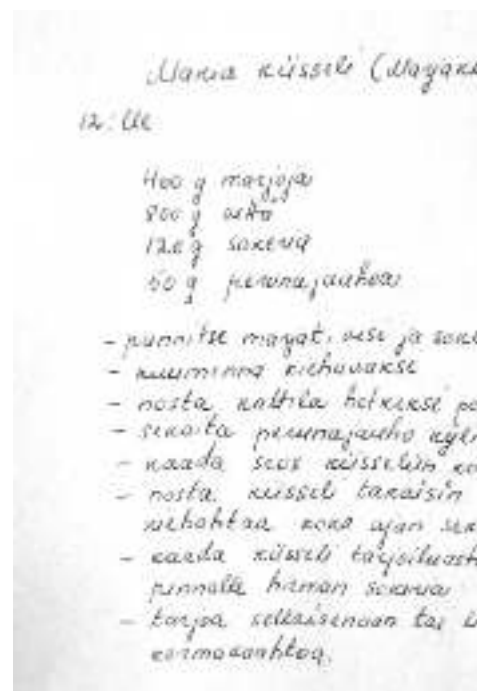 Marja kiisseli (Marjake
12:lle
400 g marjoja
800 g vettä
120 g sokeria
50 g perunajauhoa
- punnitse marjat, vesi ja soke
- kuumenna kiehuvaksi
- nosta kattila hetkeksi po
- sekoita perunajauho kylm
- kaada seos kiisseliin
- nosta kiisseli takaisin
kiehahtaa koko ajan sek
- kaada kiisseli tarjoiluasti
pinnalle hieman sokeria
- tarjoa sellaisenaan tai
kermavaahtoa.